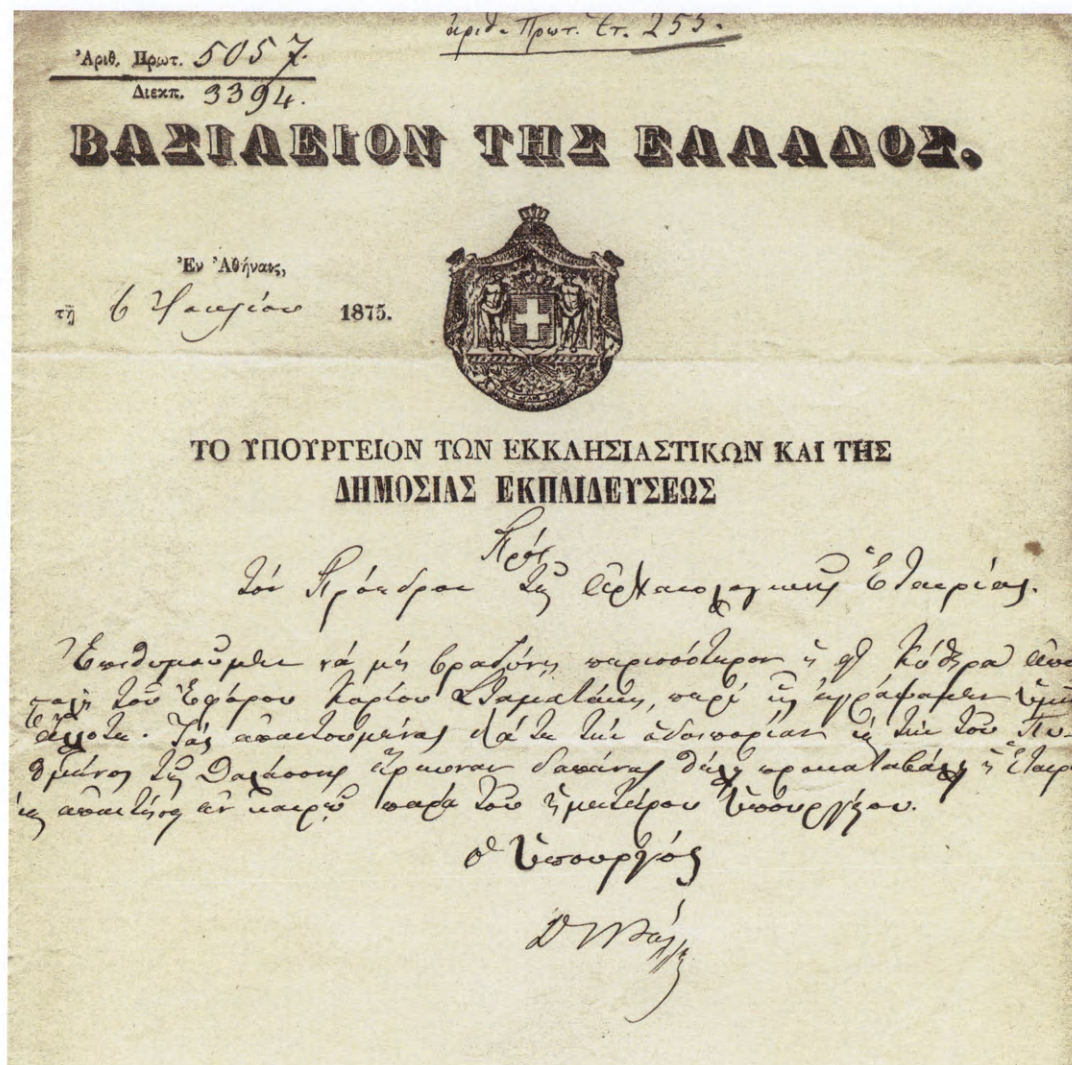 ἀριθ. Πρωτ. Ετ. 253.
Ἀριθ. Πρωτ. 5057.
Διεκπ. 3394.
ΒΑΣΙΛΕΙΟΝ ΤΗΣ ΕΛΛΑΔΟΣ.
Ἐν Ἀθήναις,
τῇ 6 1875.
ΤΟ ΥΠΟΥΡΓΕΙΟΝ ΤΩΝ ΕΚΚΛΗΣΙΑΣΤΙΚΩΝ ΚΑΙ ΤΗΣ
ΔΗΜΟΣΙΑΣ ΕΚΠΑΙΔΕΥΣΕΩΣ
Πρός
τὸν Πρόεδρον τῆς Ἀρχαιολογικῆς Ἑταιρίας.
Ἐπιθυμοῦμεν νὰ μὴ βραδύνῃ περισσότερον ἡ εἰς Κύθηρα ἀπο
στολὴ τοῦ Ἐφόρου Κυρίου Σταματάκη, περὶ ἧς ἐγράφαμεν ὑμῖν
ἄλλοτε. Τὰς ἀπαιτουμένας διά τε τὴν ὁδοιπορίαν καὶ τὴν τοῦ Πυ-
θμένος τῆς Θαλάσσης ἔρευναν δαπάνας θέλει προκαταβάλῃ ἡ Ἑταιρ
ἀπαιτήσῃ ἐν καιρῷ παρὰ τοῦ ἡμετέρου Ὑπουργείου.
Ὁ Ὑπουργός